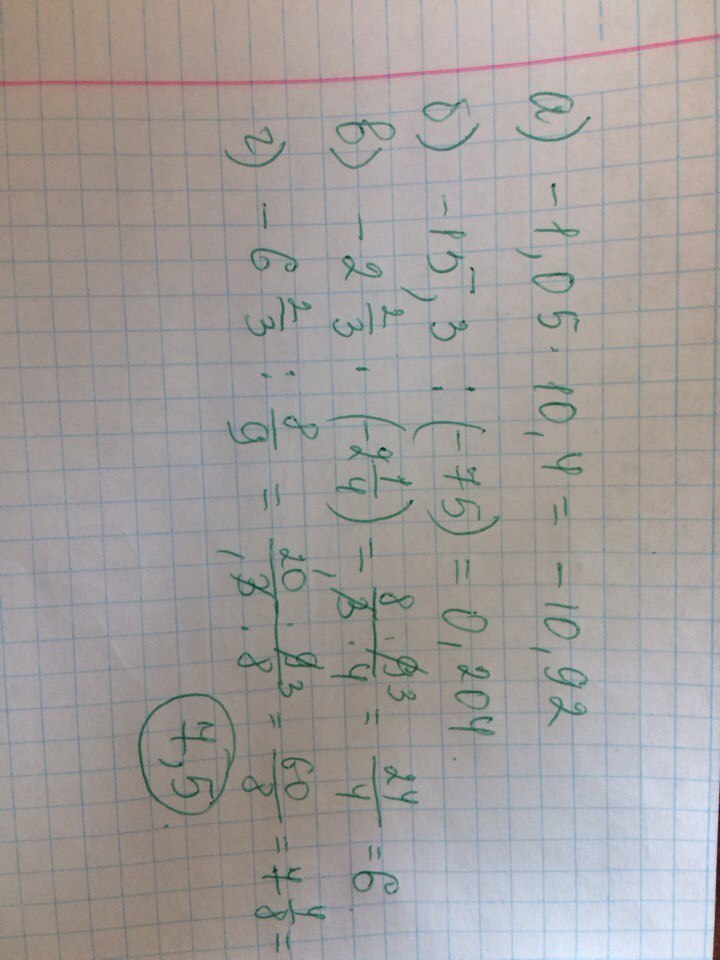 а) -1,05 · 10,4 = -10,92
б) -15,3 : (-75) = 0,204
в) -2 2/3 · (-2 1/4) = 8·9 3/1 3·4 = 24/4 = 6
г) -6 2/3 : 8/9 = 20·9 3/1 3·8 = 60/8 = 7 4/8 =
7,5